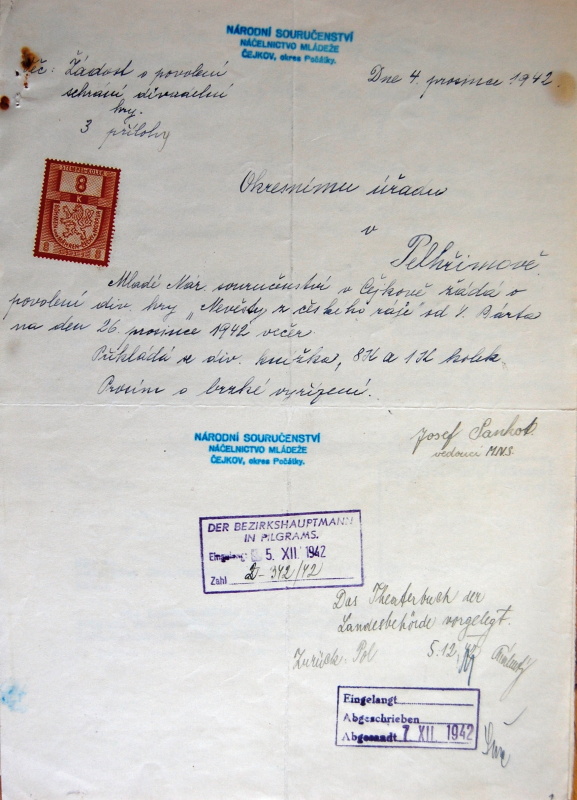 NÁRODNÍ SOURUČENSTVÍ
NÁČELNICTVO MLÁDEŽE
ČEJKOV, okres Počátky.
Dne 4. prosince 1942.
Věc: Žádost o povolení
sehrání divadelní
hry.
3 přílohy
STEMPEL-KOLEK
8
K
8 8
Okresnímu úřadu
v
Pelhřimově.
Mladé Nár. souručenství v Čejkově žádá o
povolení div. hry „Nevěsty z českého ráje" od V. Bárta
na den 26. prosince 1942 večer.
Přikládá se div. knížka, 8K a 1K kolek.
Prosím o brzké vyřízení.
NÁRODNÍ SOURUČENSTVÍ
NÁČELNICTVO MLÁDEŽE
ČEJKOV, okres Počátky.
Josef
vedoucí M.N.S.
DER BEZIRKSHAUPTMANN
IN PILGRAMS.
Eingelangt: 5. XII. 1942
Zahl 2-342/42
Das Theaterbuch der
Landesbehörde vorgelegt.
Zurück: Pol 5.12.
Eingelangt
Abgeschrieben
Abgesandt 7. XII. 1942